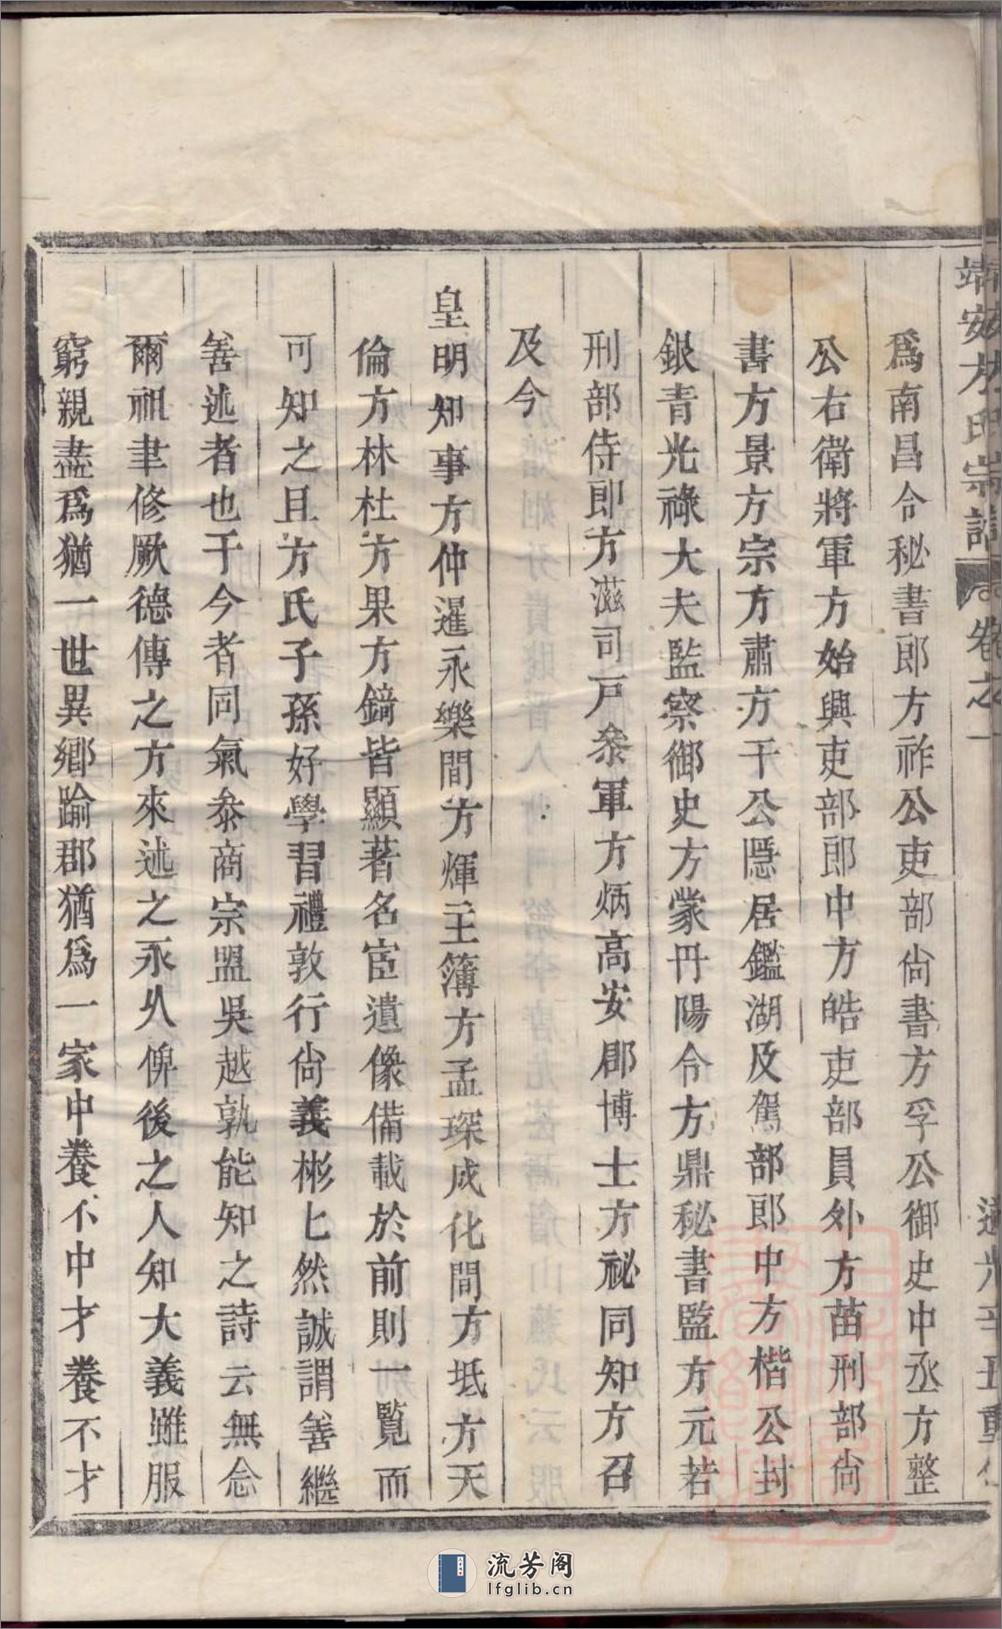 靖安方氏宗譜 卷之一
爲南昌令秘書郎方祚公吏部尙書方孚公御史中丞方整
公右衛將軍方始興吏部郎中方皓吏部員外方苗刑部尙
書方景方宗方肅方干公隱居鑑湖及駕部郎中方楷公封
銀青光祿大夫監察御史方蒙丹陽令方鼎秘書監方元若
刑部侍郎方滋司戸叅軍方炳高安郡博士方祕同知方召
及今
皇明知事方仲暹永樂間方煇主簿方孟琛成化間方坻方天
倫方林杜方果方鏑皆顯著名宦遺像備載於前則一覽而
可知之且方氏子孫好學習禮敦行尙義彬匕然誠謂善繼
善述者也于今者同氣叅商宗盟吳越孰能知之詩云無念
爾祖聿修厥德傳之方來述之永久俾後之人知大義雖服
窮親盡爲猶一世異鄉踰郡猶爲一家中養不中才養不才
流芳阁
lfglib.cn